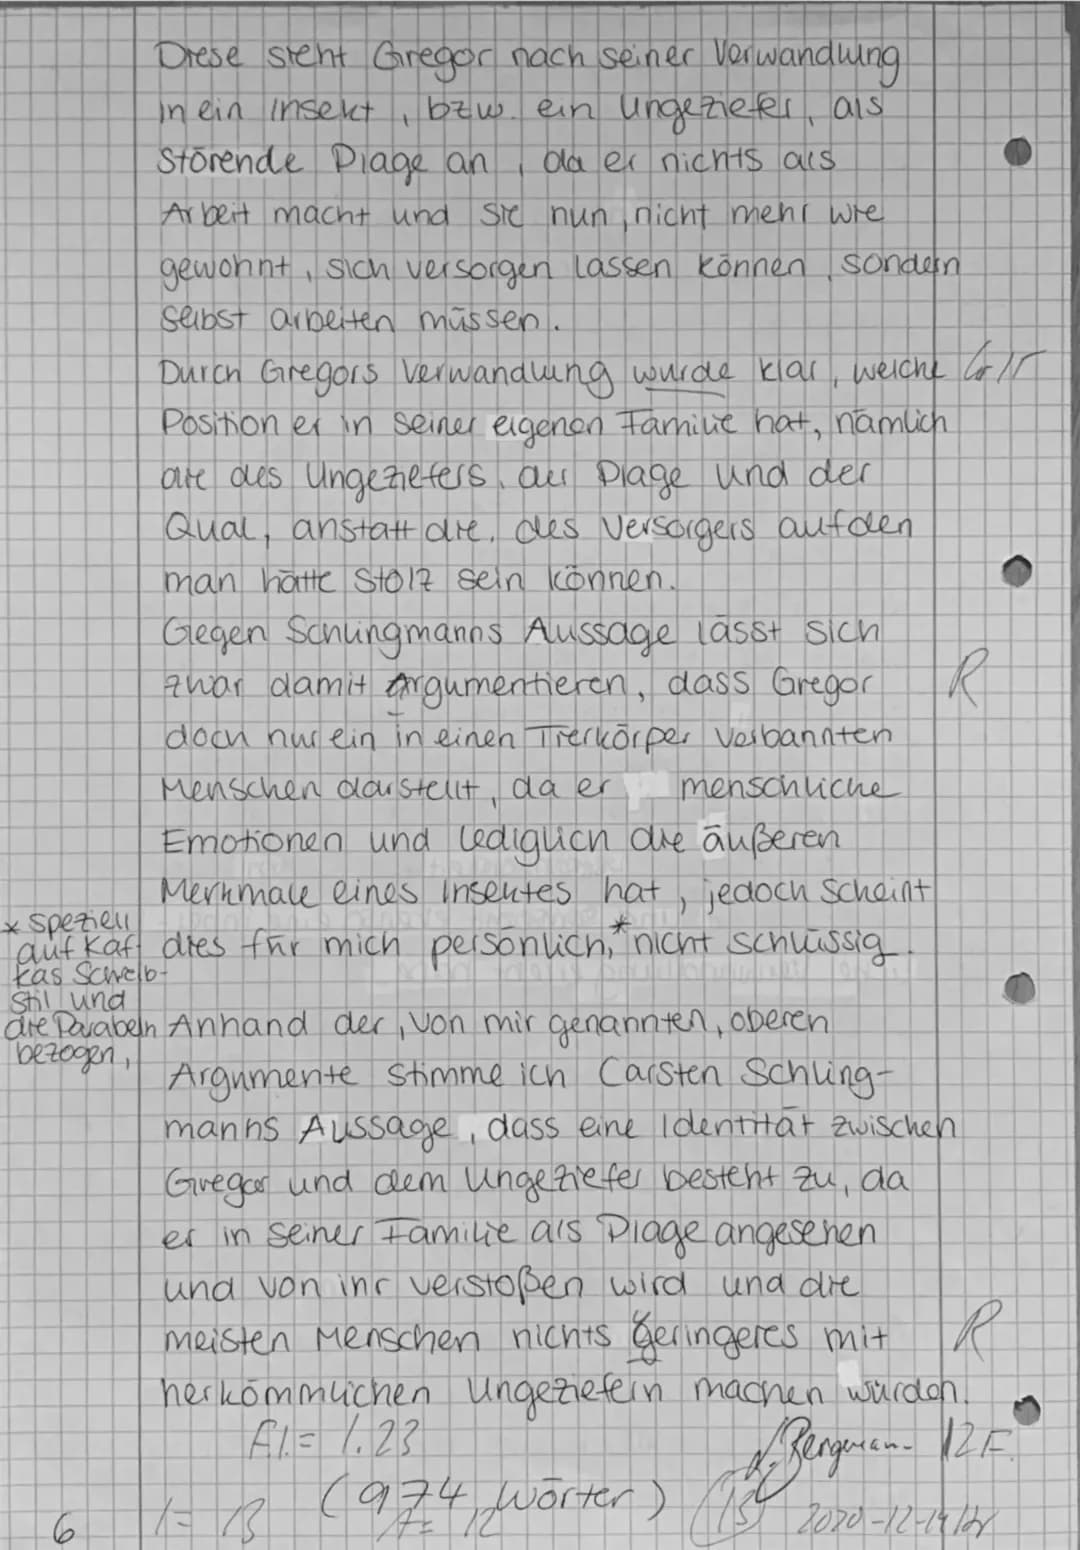 Diese sieht Gregor nach seiner Verwandlung
in ein Insekt, bzw. ein Ungeziefer, als
störende Plage an, da er nichts als
Arbeit macht und sie nun, nicht mehr wie
gewohnt, sich versorgen lassen können, sondern
selbst arbeiten müssen.
Durch Gregors Verwandlung wurde klar, welche Gr/T
Position er in seiner eigenen Familie hat, nämlich
die des Ungeziefers, der Plage und der
Qual, anstatt die, des Versorgers auf den
man hätte stolz sein können.
Gegen Schlingmanns Aussage lässt sich
zwar damit argumentieren, dass Gregor R
doch nur ein in einen Tierkörper verbannten
Menschen darstellt, da er menschliche
Emotionen und lediglich die äußeren
Merkmale eines Insektes hat, jedoch scheint
dies für mich persönlich,* nicht schlüssig.
* speziell
auf Kaf-
kas Schreib-
stil und
die Parabeln
bezogen,
Anhand der, von mir genannten, oberen
Argumente stimme ich Carsten Schling-
manns Aussage, dass eine Identität zwischen
Gregor und dem Ungeziefer besteht zu, da
er in seiner Familie als Plage angesehen
und von ihr verstoßen wird und die
meisten Menschen nichts geringeres mit R
herkömmlichen Ungeziefern machen würden.
FI.= 1.23
Bergmann 12 F.
(974 Wörter)
I= 13
A= 12
(13)
2020-12-14
6